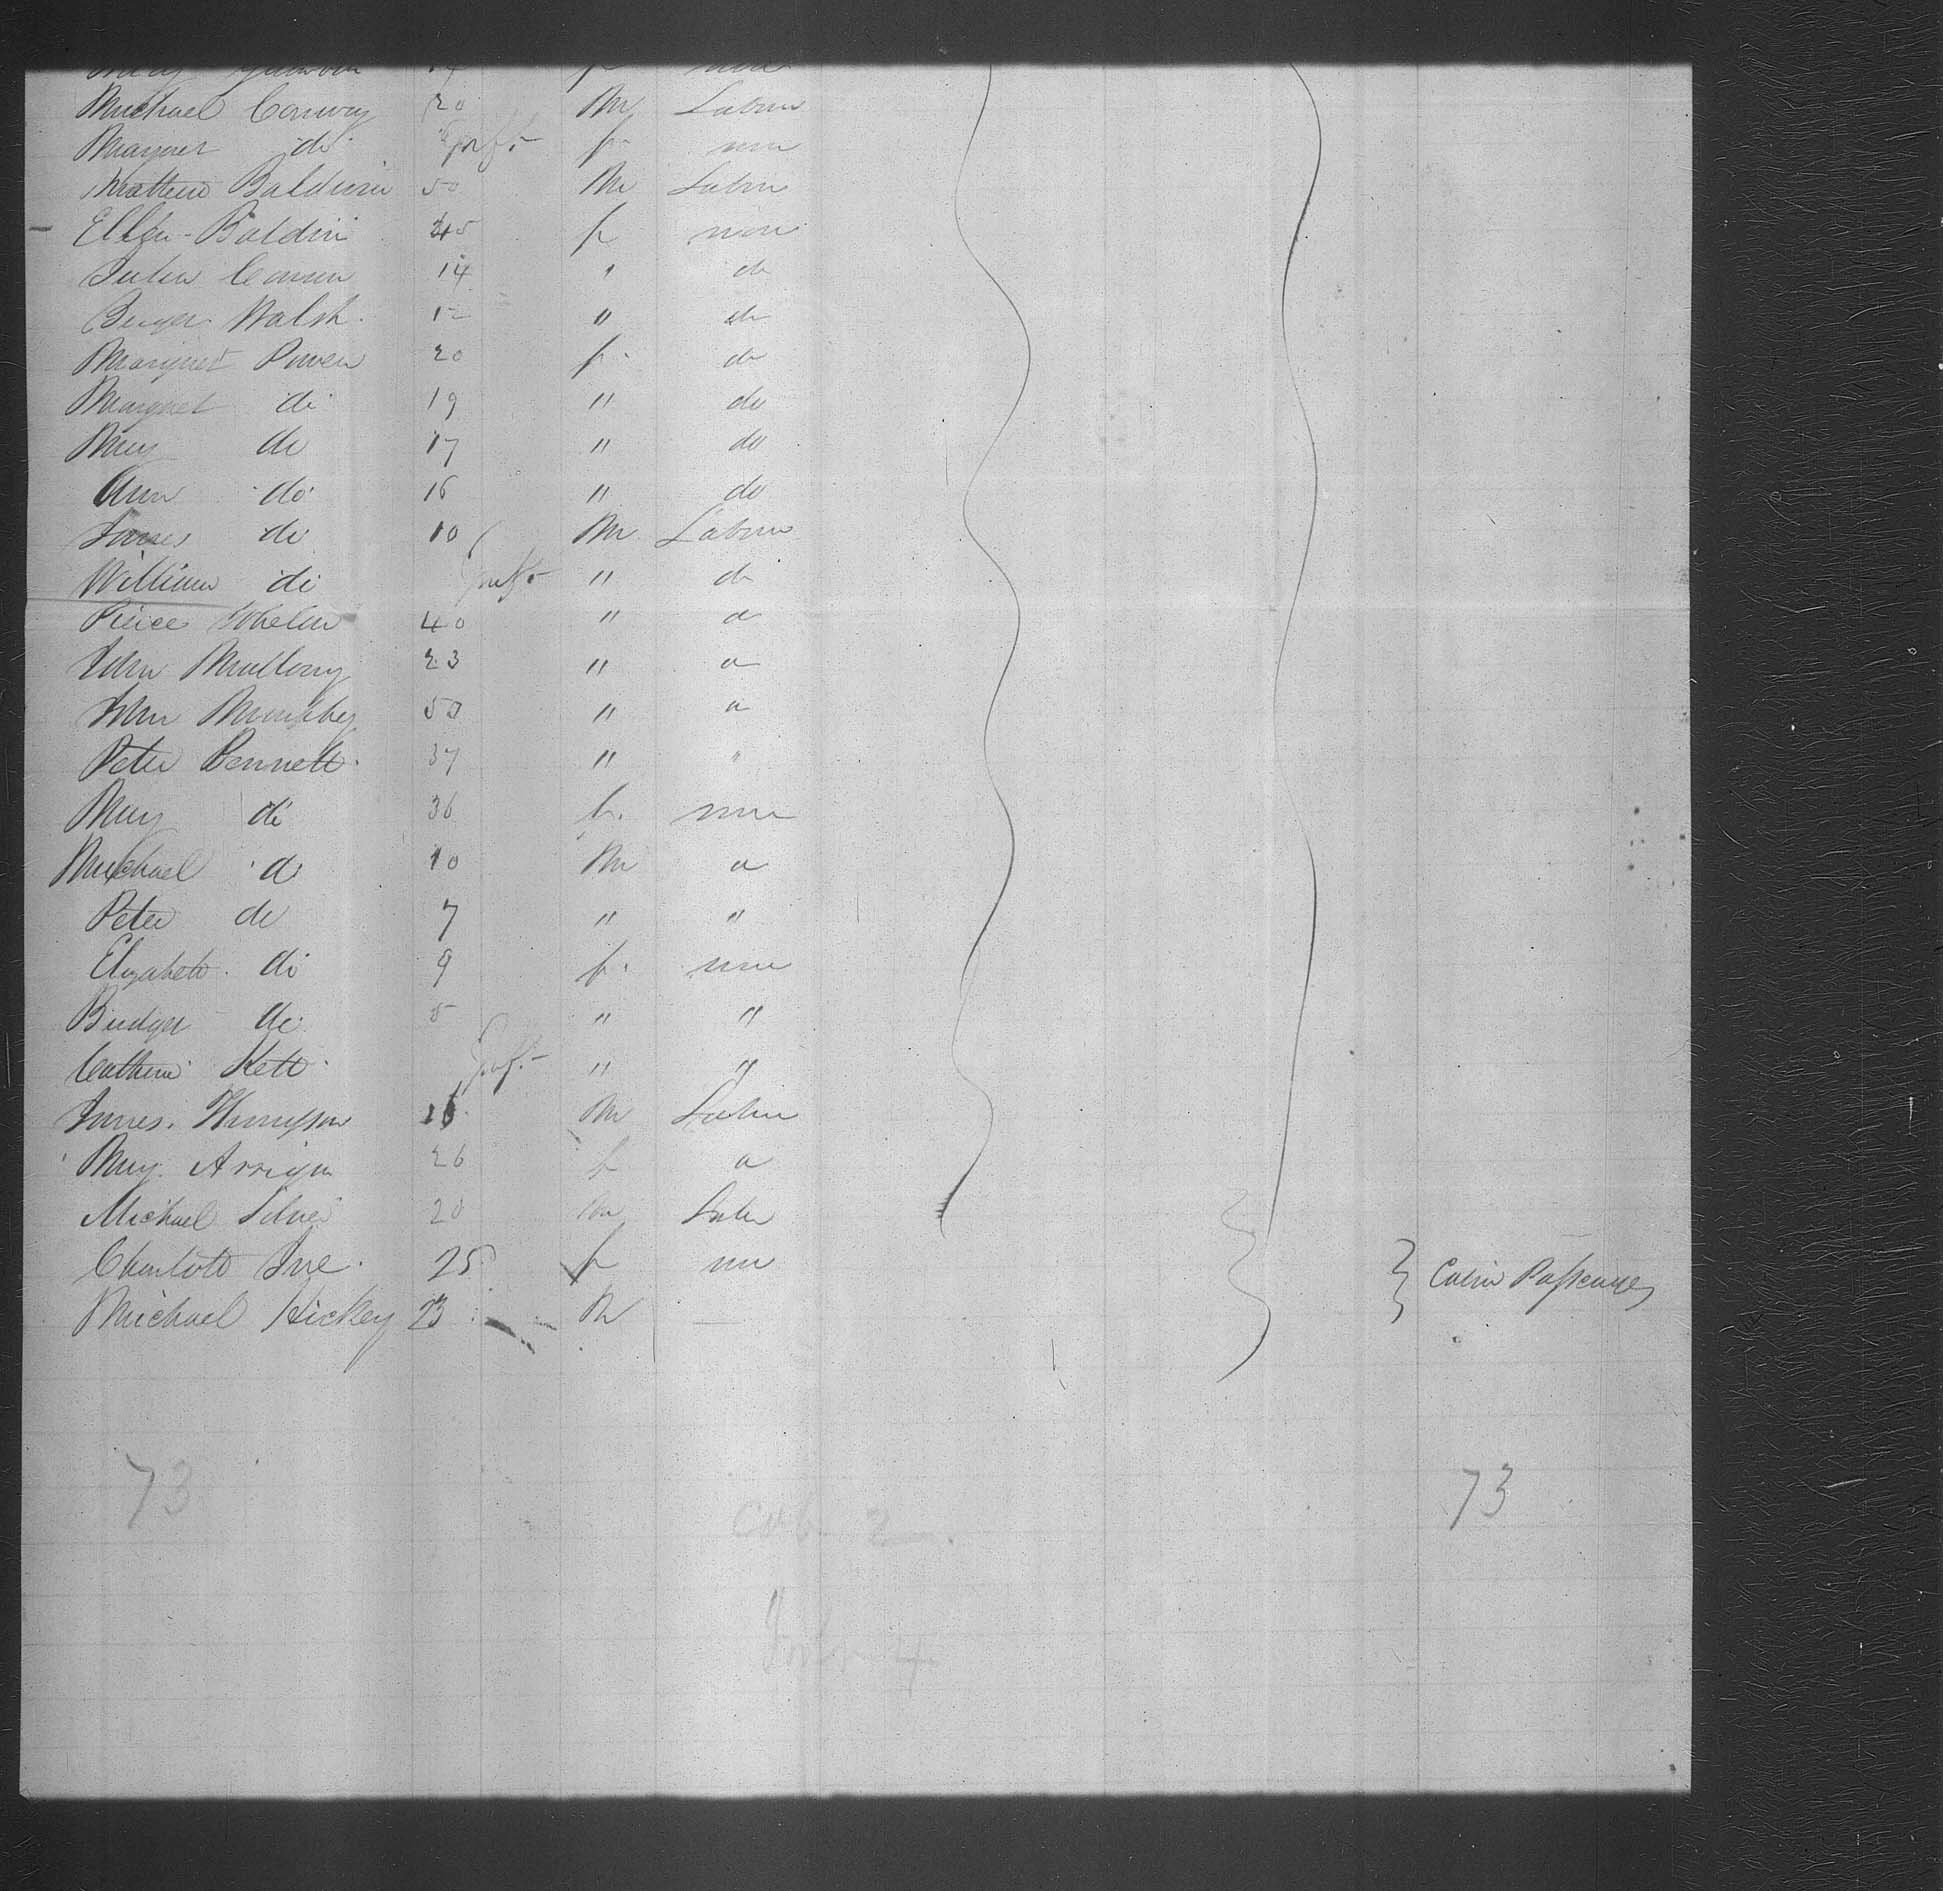 Michael Conway 20 M Labrer
Margret do Inft. f non
Matthew Baldwin 50 M Labrer
Ellen Baldin 45 f non
14 " do
Walsh 12 " do
Margret Power 20 f do
Margret do 19 " do
Mary do 17 " do
Ann do 16 " do
James do 10 M Labrer
William do Inft. " do
Pierce Whelan 40 " do
John Mullony 23 " do
John Murphy 50 " do
Peter Bennett 37 " "
Mary do 36 f. non
Michael do 10 M do
Peter do 7 " "
Elizabeth do 9 f. non
Bridget do 5 " "
Catherine Kett Inft. " "
James M Labrer
Mary Arrigan 26 f do
Michael 20 M Labr
Charlott 25 f non
Michael Hickey 23 M —
Cabin Passengers
73 73
Cab 2
Infts 4